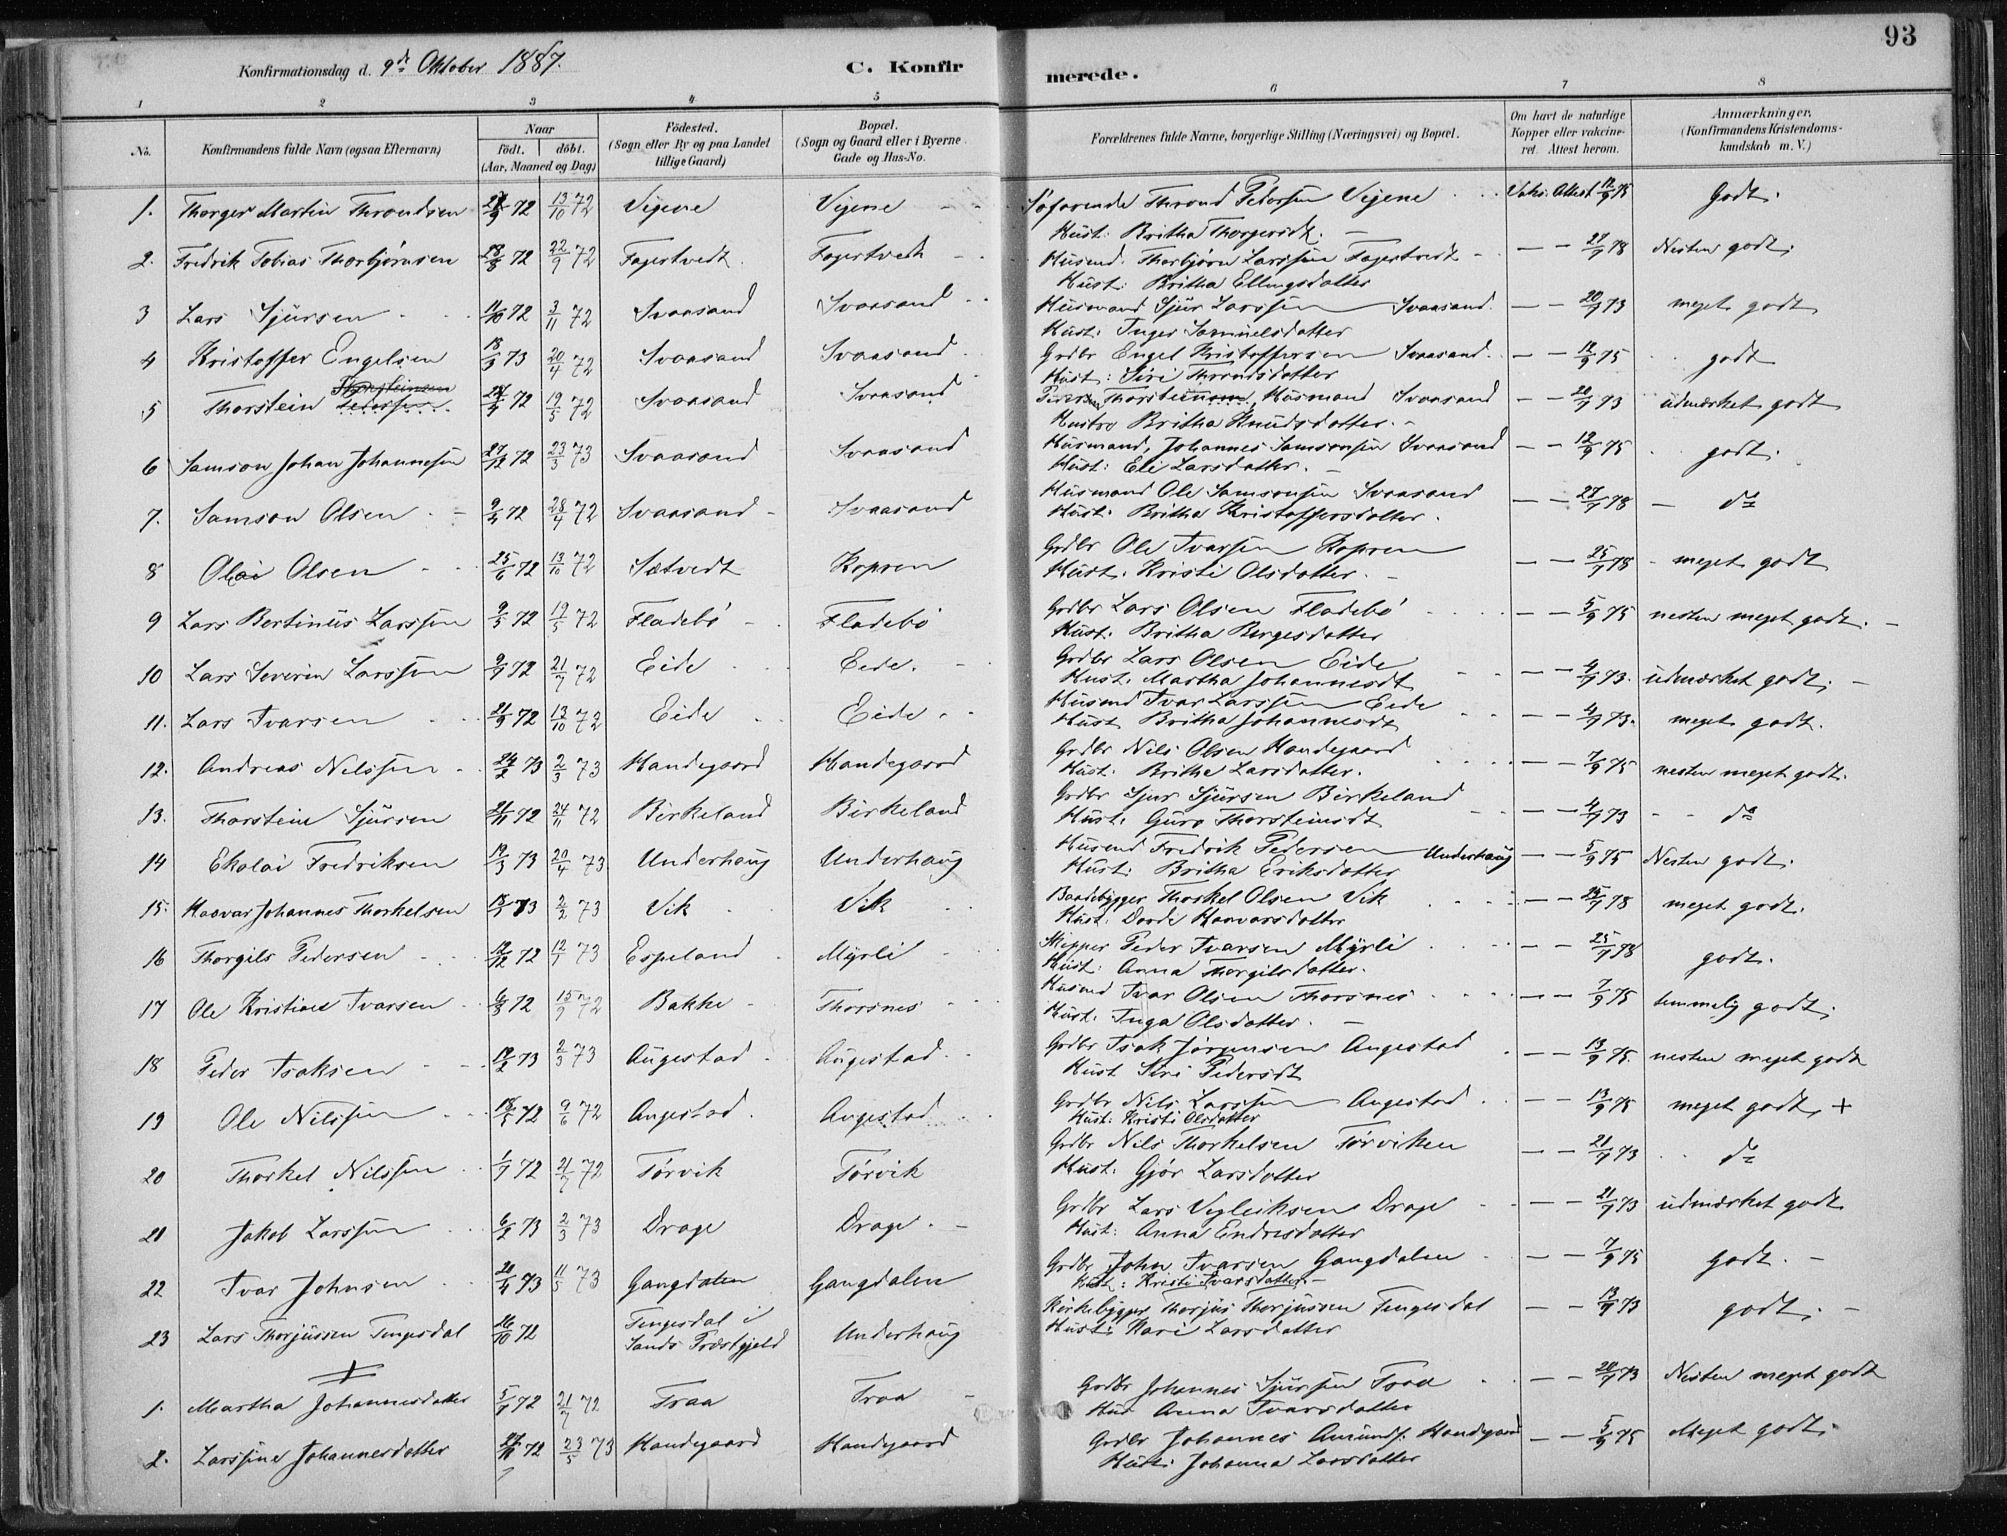 93
Konfirmationsdag d. 9de Oktober 1887. C. Konfirmerede.
1 2 3 4 5 6 7 8
No. Konfirmandens fulde Navn (ogsaa Efternavn) Naar födt. döbt. (Aar, Maaned og Dag) Födested. (Sogn eller By og paa Landet tillige Gaard) Bopæl. (Sogn og Gaard eller i Byerne Gade og Hus-No. Forældrenes fulde Navne, borgerlige Stilling (Næringsvei) og Bopæl. Om havt de naturlige Kopper eller vakcineret. Attest herom. Anmærkninger. (Konfirmandens Kristendomskundskab m. V.)
1. Thorger Martin Throndsen 72 13/10 72 Vijene Vijene Søfarende Thrond Pedersen Vijene Vaks. Attest 12/9 75 Godt.
Hust: Britha Thorgersdt.
2. Fredrik Tobias Thorbjørnsen 72 22/9 72 Fagertvedt Fagertvedt Husmd. Thorbjørn Larssen Fagertvedt 27/9 78 Nesten godt.
Hust: Britha Ellingsdatter
3 Lars Sjursen 11/10 72 3/11 72 Svaasand Svaasand Husmand Sjur Larssen Svaasand 20/9 73 meget godt
Hust: Inger Samuelsdatter
4 Kristoffer Engelsen 18/3 73 20/4 72 Svaasand Svaasand Grdbr Engel Kristoffersen Svaasand 12/9 75 godt
Hust: Siri Throndsdatter
5 Thorstein Pedersen 72 19/5 72 Svaasand Svaasand Peder Thorsteinsen, Husmand Svaasand 20/9 73 udmærket godt
Hustro Britha Knudsdatter
6 Samson Johan Johannesen 27/12 72 23/3 73 Svaasand Svaasand Husmand, Johannes Samsonsen Svaasand 12/9 75 godt.
Hust: Eli Larsdatter.
7. Samson Olsen 9/4 72 28/4 72 Svaasand Svaasand Husmand Ole Samsonsen Svaasand 27/9 78 do
Hust: Britha Kristoffersdatter.
8 Olai Olsen 25/6 72 13/10 72 Sætvedt Kopren Grdbr Ole Ivarsen Kopren 25/9 78 meget godt
Hust. Kristi Olsdatter.
9 Lars Bertinus Larssen 9/5 72 19/5 72 Fladebø Fladebø Grdbr Lars Olsen Fladebø 5/9 75 nesten meget godt.
Hust: Britha Bergesdatter
10 Lars Severin Larssen 9/7 72 21/7 72 Eide Eide. Grdbr Lars Olsen Eide 4/9 73. udmærket godt.
Hust. Martha Johannesdt
11. Lars Ivarsen 21/9 72 13/10 72 Eide Eide Husmd Ivar Larssen Eide 4/9 73. meget godt.
Hust Britha Johannesdt
12. Andreas Nilssen 24/2 73 2/3 73 Handegaard Handegaard Grdbr Nils Olsen Handegaard 7/9 75 nesten meget godt.
Hust: Britha Larsdatter.
13. Thorstein Sjursen 72 24/11 72 Birkeland Birkeland Grdbr Sjur Sjursen Birkeland 4/9 73 do
Hust. Guro Thorsteinsdt
14 Ekolai Fredriksen 19/3 73 20/4 73 Underhaug Underhaug Husmd Fredrik Pedersen Underhaug 5/9 75 Nesten godt.
Hust: Britha Eriksdatter
15. Haavar Johannes Thorkelsen 73 2/2 73 Vik Vik Baadebygger Thorkel Olsen Vik 78 meget godt.
Hust: Dorde Haavarsdatter
16 Thorgils Pedersen 19/12 72 12/1 73 Espeland Myrli Skipper Peder Ivarsen Myrli 25/9 78 godt.
Hust: Anna Thorgilsdatter.
17 Ole Kristian Ivarsen 6/8 72 15/9 72 Bakke Thorsnes Husmd Ivar Olsen Thorsnes 7/9 75 temmelig godt.
Hust. Inga Olsdatter.
18 Peder Isaksen 73 2/3 73 Augestad Augestad Grdbr Isak Jørgensen Augestad 13/9 75. nesten meget godt
Hust Siri Pedersdt
19 Ole Nilssen 18/5 72 9/6 72 Augestad Augestad Grdbr Nils Larssen Augestad 13/9 75 meget godt +
Hust: Kristi Olsdatter
20 Thorkel Nilssen 1/7 72 21/7 72 Tørvik Tørvik Grdbr Nils Thorkelsen Tørviken 21/9 73 do
Hust: Gjør Larsdatter
21 Jakob Larssen 6/2 73 2/3 73 Drage Drage. Grdbr Lars Vegleiksen Drage 21/9 73 udmærket godt
Hust: Anna Endresdatter
22 Ivar Johnsen 73 11/5 73 Gangdalen Gangdalen Grdbr John Ivarsen Gangdalen 7/9 75 godt.
Hust: Kristi Ivarsdatter
23 Lars Thorjussen Tengesdal 26/10 72 Tengesdal i Sands Præstgjeld Underhaug Kirkebygger Thorjus Thorjussen Tengesdal 13/9 73 godt.
Hust: Kari Larsdatter
1. Martha Johannesdatter 5/7 72 21/7 72 Traa Traa Grdbr Johannes Sjursen Traa 20/9 73 Nesten meget godt
Hus Anna Ivarsdatter
2. Larssine Johannesdatter 72 23/5 73 Handegaard Handegaard Grdbr Johannes Amunds. Handegaard 5/9 75 Meget godt.
Hust: Johanna Larsdatter